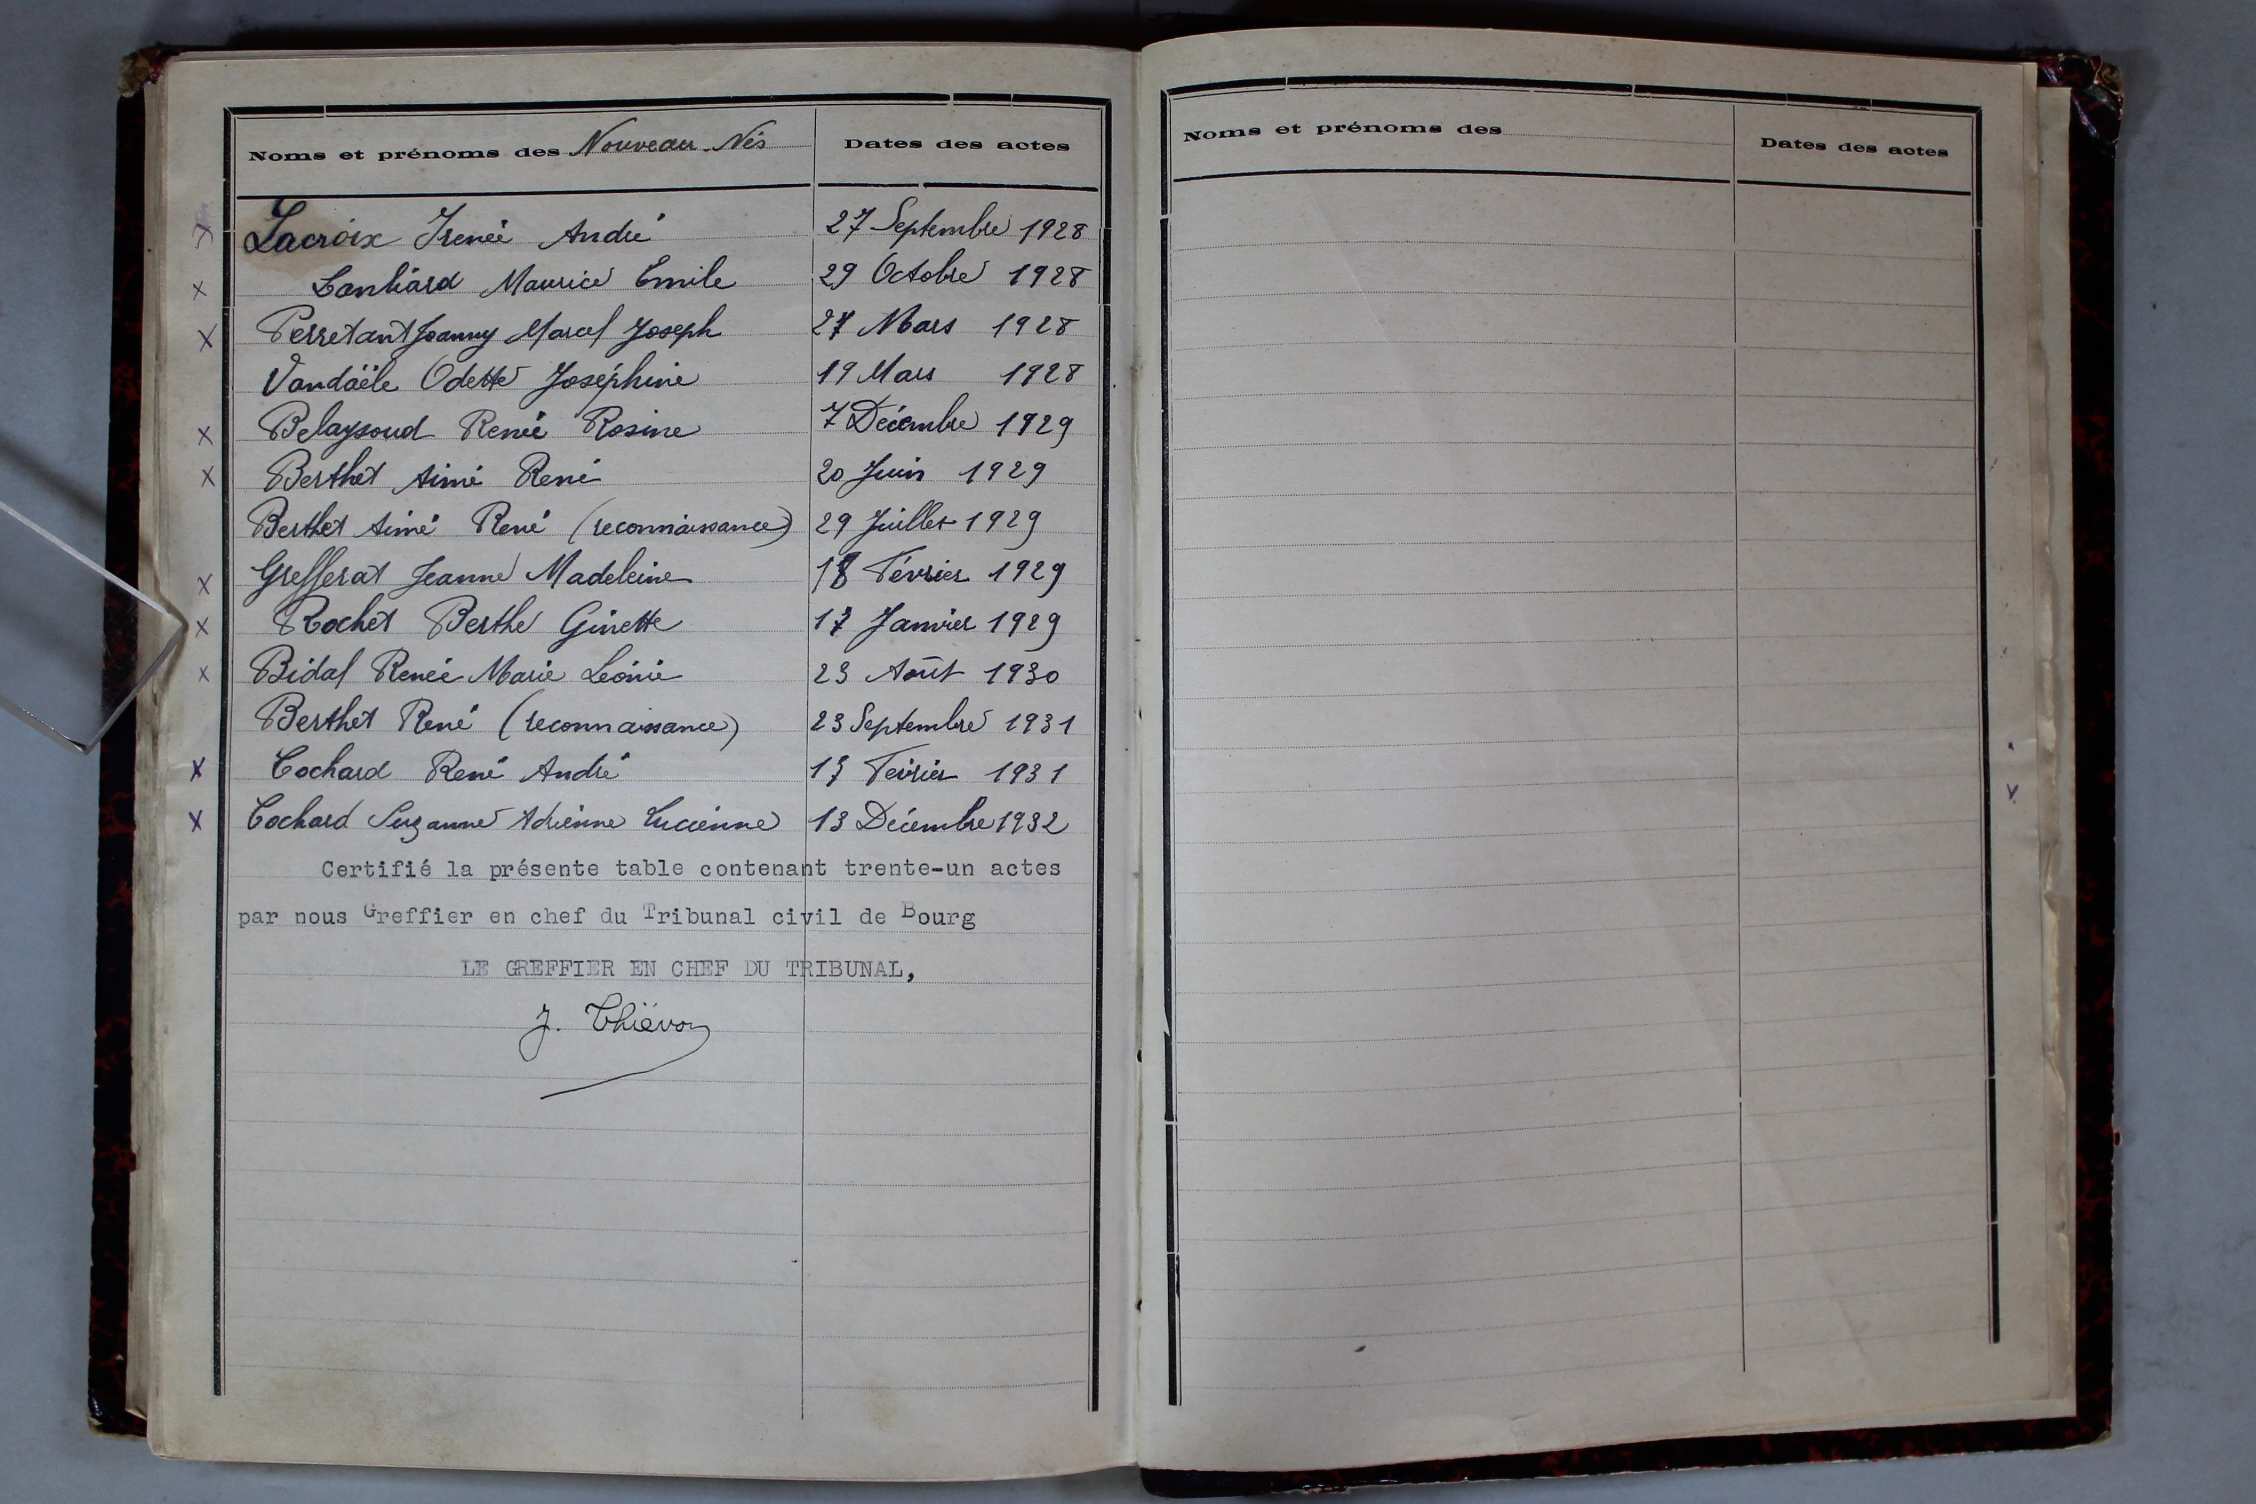 Noms et prénoms des Nouveau-Nés Dates des actes
Lacroix Irénée André 27 Septembre 1928
Maurice Emile 29 Octobre 1928
Perretant Joanny Marcel Joseph 27 Mars 1928
Vandaële Odette Joséphine 19 Mars 1928
Belaysoud Renée Rosine 7 Décembre 1929
Berthet Aimé René 20 Juin 1929
Berthet Aimé René (reconnaissance) 29 Juillet 1929
Grefferat Jeanne Madeleine 18 Février 1929
Rochet Berthe Ginette 17 Janvier 1929
Bidal Renée Marie Léonie 23 Août 1930
Berthet René (reconnaissance) 23 Septembre 1931
Cochard René André Février 1931
Cochard Suzanne Adrienne Lucienne 13 Décembre 1932
Certifié la présente table contenant trente-un actes
par nous Greffier en chef du Tribunal civil de Bourg
LE GREFFIER EN CHEF DU TRIBUNAL,
J. Thiévon
Noms et prénoms des Dates des actes